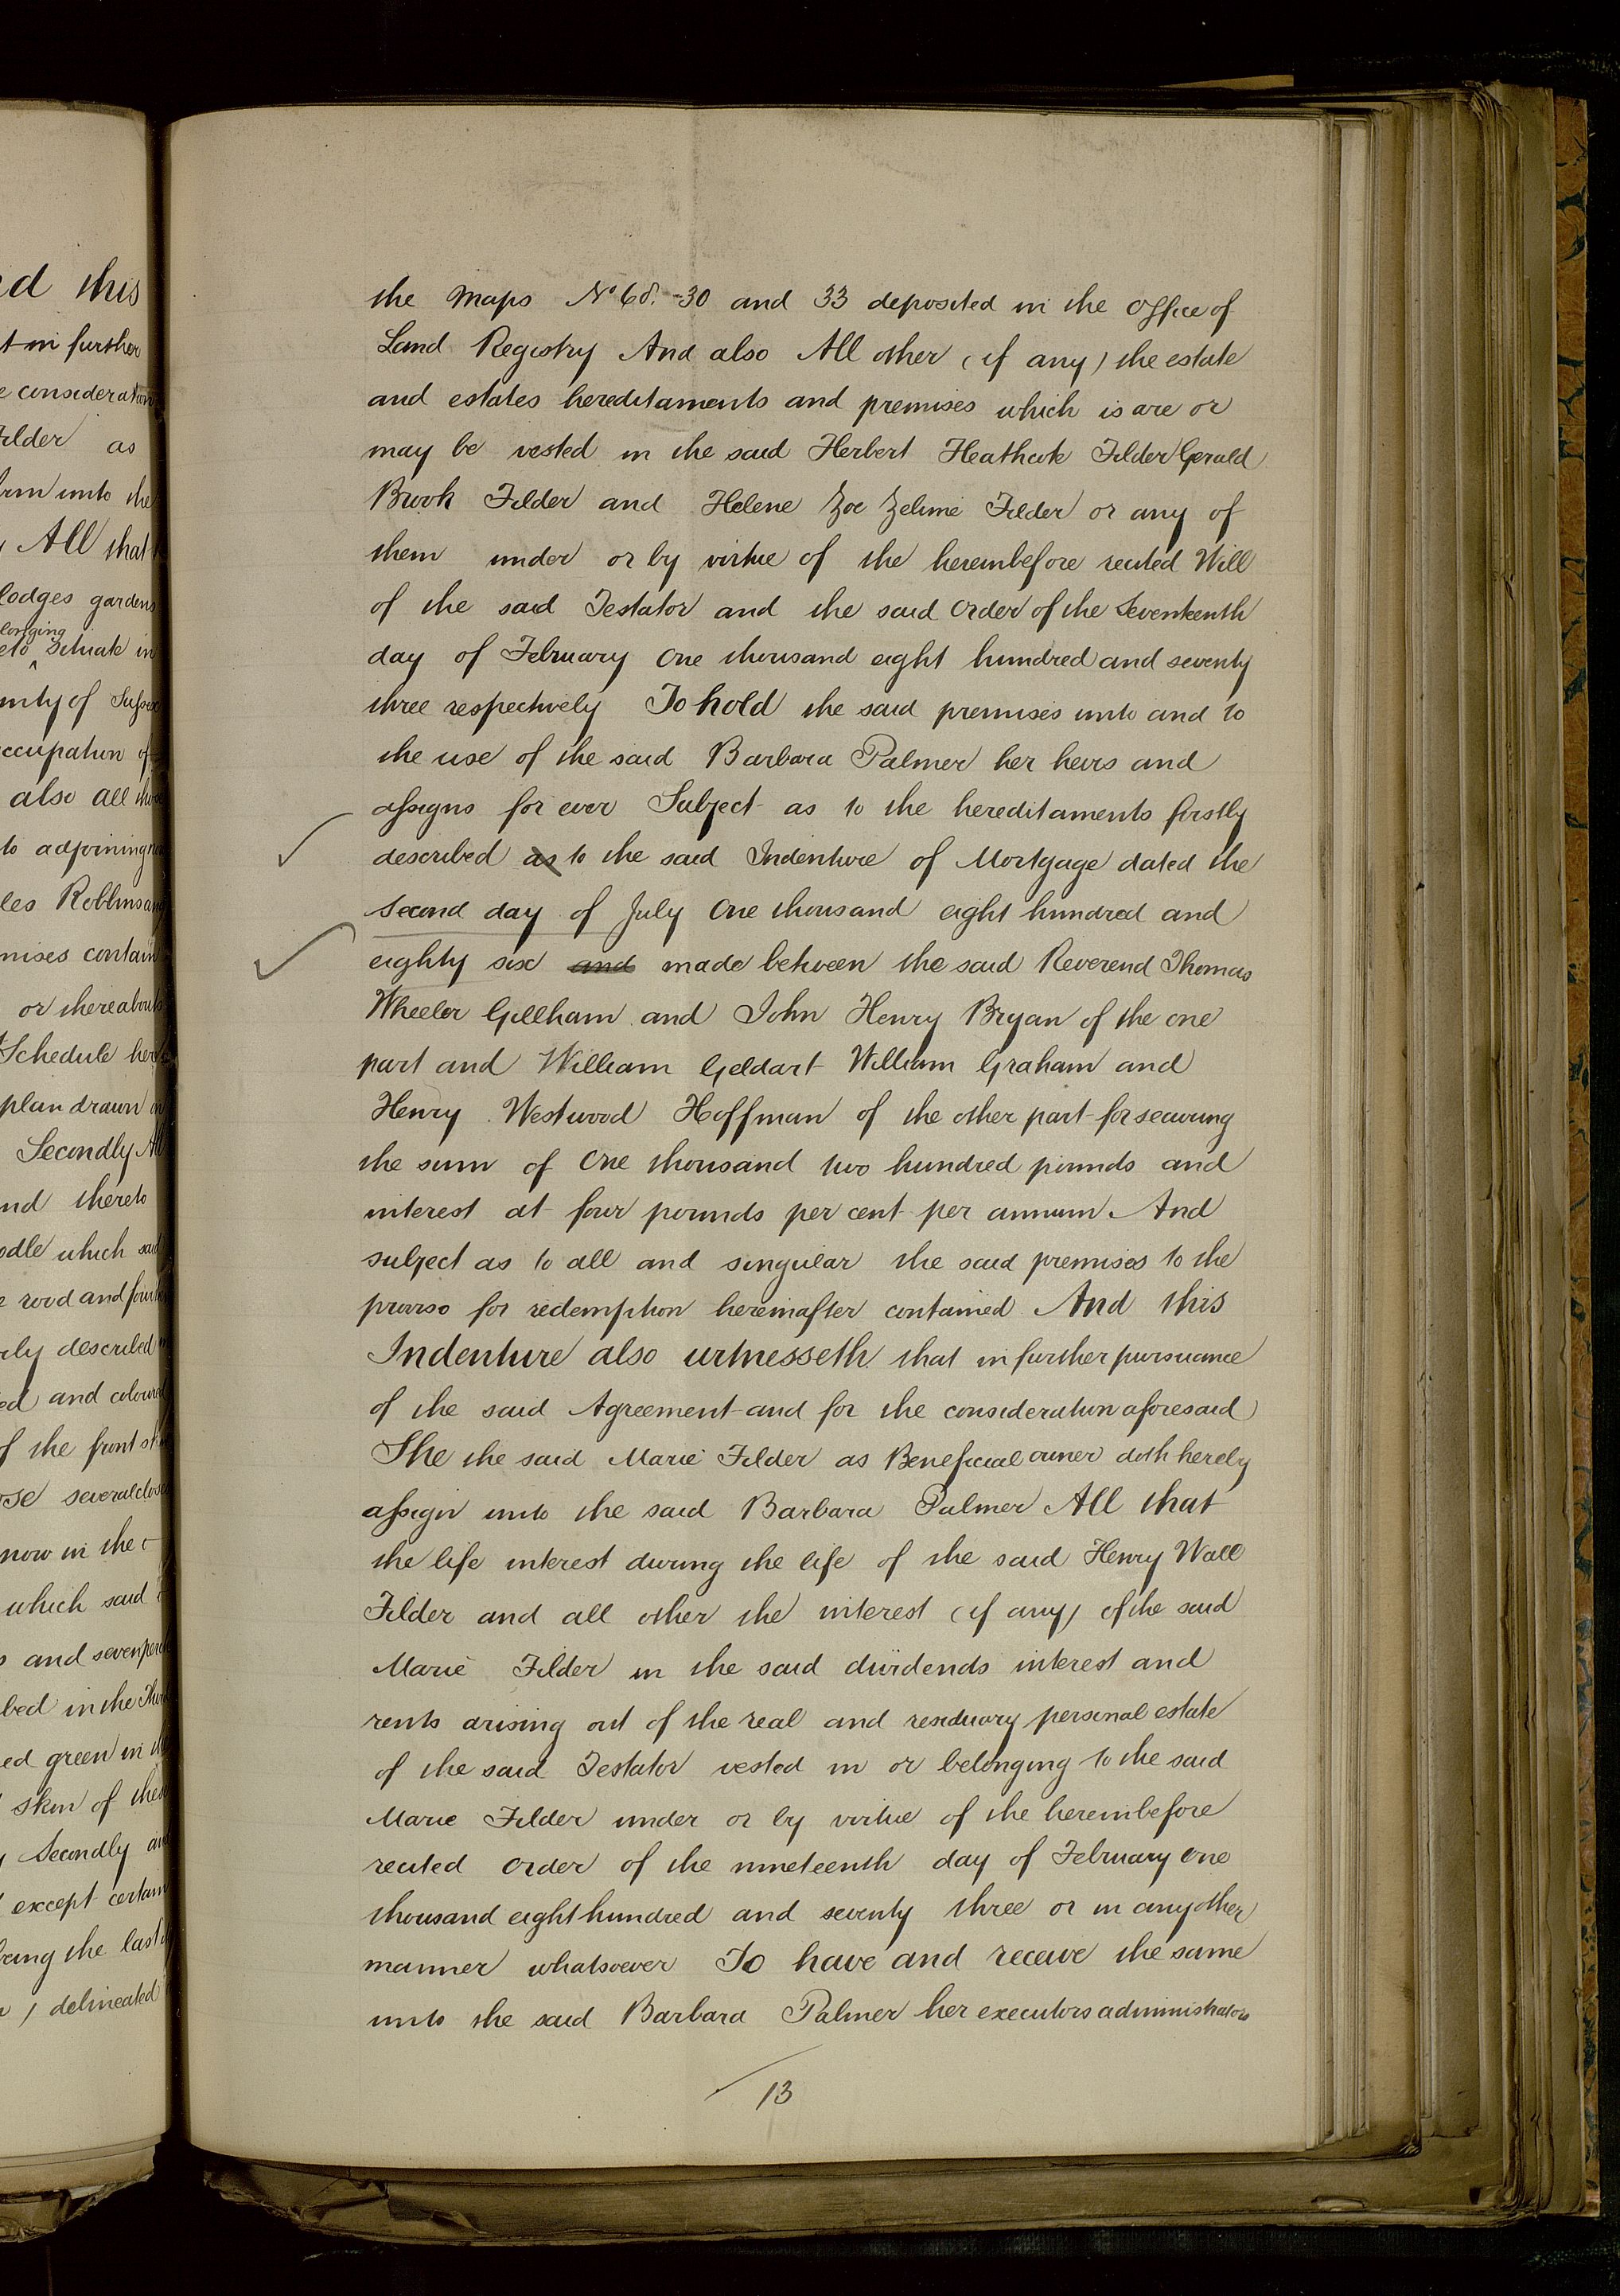 nd this
t in further
e consideration
Filder as
firm unto the
All that
lodges gardens
longing
eto situate in
unty of Sussex
ccupation of
also all those
to adjoining
les Robbins
mises contain
or thereabouts
Schedule here
plan drawn on
Secondly All
nd thereto
odle which said
e rood and
rly described
ed and coloured
of the front
ose several closes
now in the
which said
s and seven
bed in the Third
ed green in
skin of these
Secondly
except certain
being the last
) delineated
the Maps No 68. -30 and 33 deposited in the Office of
Land Registry And also All other (if any) the estate
and estates hereditaments and premises which is are or
may be vested in the said Herbert Heathcote Filder Gerald
Brook Filder and Helene Zoe Zelime Filder or any of
them under or by virtue of the hereinbefore recited Will
of the said Testator and the said Order of the Seventeenth
day of February One thousand eight hundred and seventy
three respectively To hold the said premises unto and to
the use of the said Barbara Palmer her heirs and
assigns for ever Subject as to the hereditaments firstly
described as to the said Indenture of Mortgage dated the
second day of July One thousand eight hundred and
eighty six and made between the said Reverend Thomas
Wheeler Gillham and John Henry Bryan of the one
part and William Geldart William Graham and
Henry Westwood Hoffman of the other part for securing
the sum of One thousand two hundred pounds and
interest at four pounds per cent per annum And
subject as to all and singular the said premises to the
proviso for redemption hereinafter contained And this
Indenture also witnesseth that in further pursuance
of the said Agreement and for the consideration aforesaid
She the said Marie Filder as Beneficial owner doth hereby
assign unto the said Barbara Palmer All that
the life interest during the life of the said Henry Wall
Filder and all other the interest (if any) of the said
Marie Filder in the said dividends interest and
rents arising out of the real and residuary personal estate
of the said Testator vested in or belonging to the said
Marie Filder under or by virtue of the hereinbefore
recited Order of the nineteenth day of February One
thousand eight hundred and seventy three or in any other
manner whatsoever To have and receive the same
unto the said Barbara Palmer her executors administrators
13